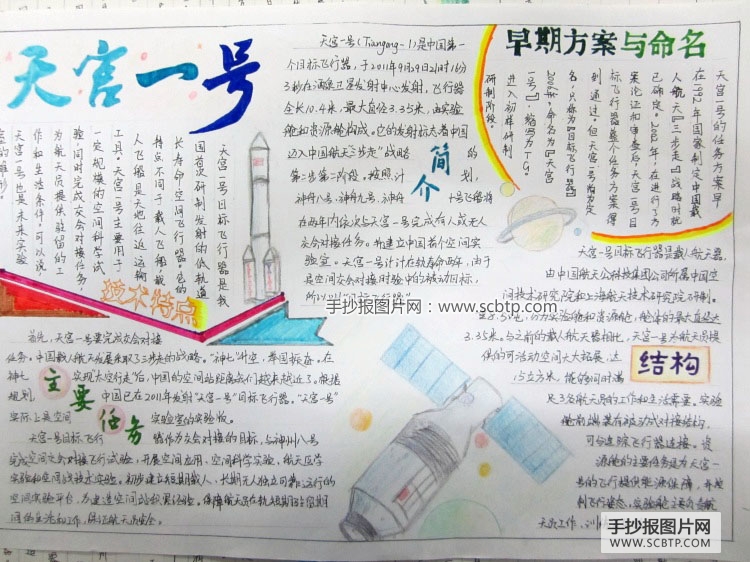 天宫一号
天宫一号(Tiangong-1)是中国第一
个目标飞行器,于2011年9月29日21时16分
3秒在酒泉卫星发射中心发射,飞行器
全长10.4米,最大直径3.35米,由实验
舱和资源舱构成。它的发射标志着中国
迈入中国航天“三步走”战略的
第二步第二阶段。按照计划,
神舟八号、神舟九号、神舟十号飞船将
在两年内依次与天宫一号完成无人或有人
交会对接任务。并建立中国首个空间实
验室。天宫一号设计在轨寿命两年,由于
是空间交会对接试验中的被动目标,
所以叫“目标飞行器”
简介
早期方案与命名
天宫一号的任务方案早
在1992年国家制定中国载
人航天『三步走』战略时就
已确定。2002年,在进行了方
案论证和审查后,天宫一号目
标飞行器整个任务方案得
到通过,但天宫一号尚未命
名,只称为『目标飞行器』
2006年,命名为『天宫
一号』,缩写为TG-1。
进入初样研制
研制阶段。
天宫一号目标飞行器是我
国首次研制发射的低轨道
长寿命空间飞行器。它的
特点不同于载人飞船载
人飞船是天地往返运输
工具。天宫一号主要用于
一定规模的空间科学试
验,同时完成交会对接任务,
为航天员提供驻留的工
作和生活条件。可以说,
天宫一号也是未来实验
室的雏形。
技术特点
天宫一号目标飞行器是载人航天器,
由中国航天公科技集团公司所属中国空
间技术研究院和上海航天技术研究院研制。
重8.5吨,分为实验舱和资源舱,舱体的最大直径达
3.35米。与之前的载人航天器相比,天宫一号为航天员提
供的可活动空间大大拓展,达
15立方米,能够同时满
足3名航天员的工作和生活需要。实验
舱前端装有被动式对接结构,
可与追踪飞行器连接。资
源舱的主要任务是为天宫一
号的飞行提供能源保障,并控
制飞行姿态。实验舱主要负责航
天员工作、训
结构
首先,天宫一号要完成交会对接
任务。中国载人航天发展采取了三步走的战略。“神七”升空,举国振奋。在
神七实现太空行走后,中国的空间站距离我们越来越近了。根据
规划,中国已在2011年发射“天宫一号”目标飞行器。“天宫一号”
实际上是空间实验室的实验版。
天宫一号目标飞行器作为交会对接的目标,与神州八号
完成空间交会对接飞行试验,开展空间应用、空间科学实验、航天医学
实验和空间站技术实验。初步建立短期载人、长期无人独立可靠运行的
空间实验平台,为建造空间站积累经验。保障航天员在轨短期驻留期
间的生活和工作,保证航天员安全。
主要任务
手抄报图片网:www.scbtp.com
手抄报图片网
WWW.SCBTP.COM